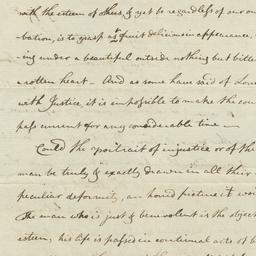 with the esteem of others, & yet be regardless of our own
bation, is to grasp at fruit delicious in appearance,
ing under a beautiful outside nothing but bitter
a rotten heart — And as some have said of Love
with Justice, it is impossible to make the cou
pass current for any considerable time —
Could the portrait of injustice or of the
man be truly & exactly drawn in all their
peculiar deformity, an horrid picture it wou
The man who is just & benevolent is the object
esteem, his life is passed in continual acts of b